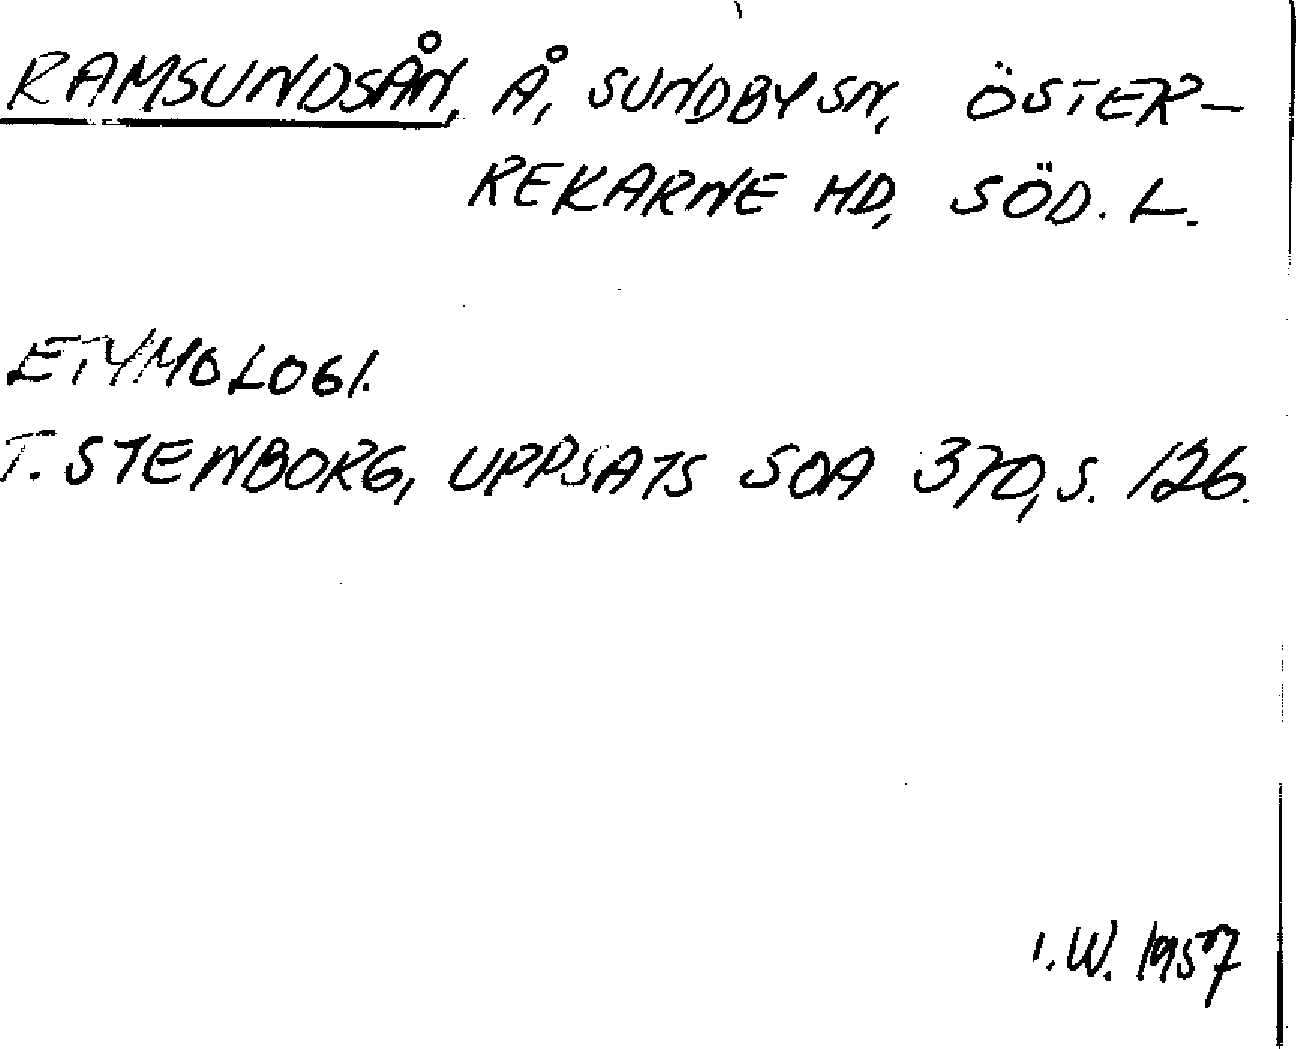 RAMSUNDSÅN, Å, SUNDBY SN, ÖSTER-
REKARNE HD, SÖD. L.
ETYMOLOGI.
T. STENBORG, UPPSATS SOA 370, S. 126.
I. W. 1957